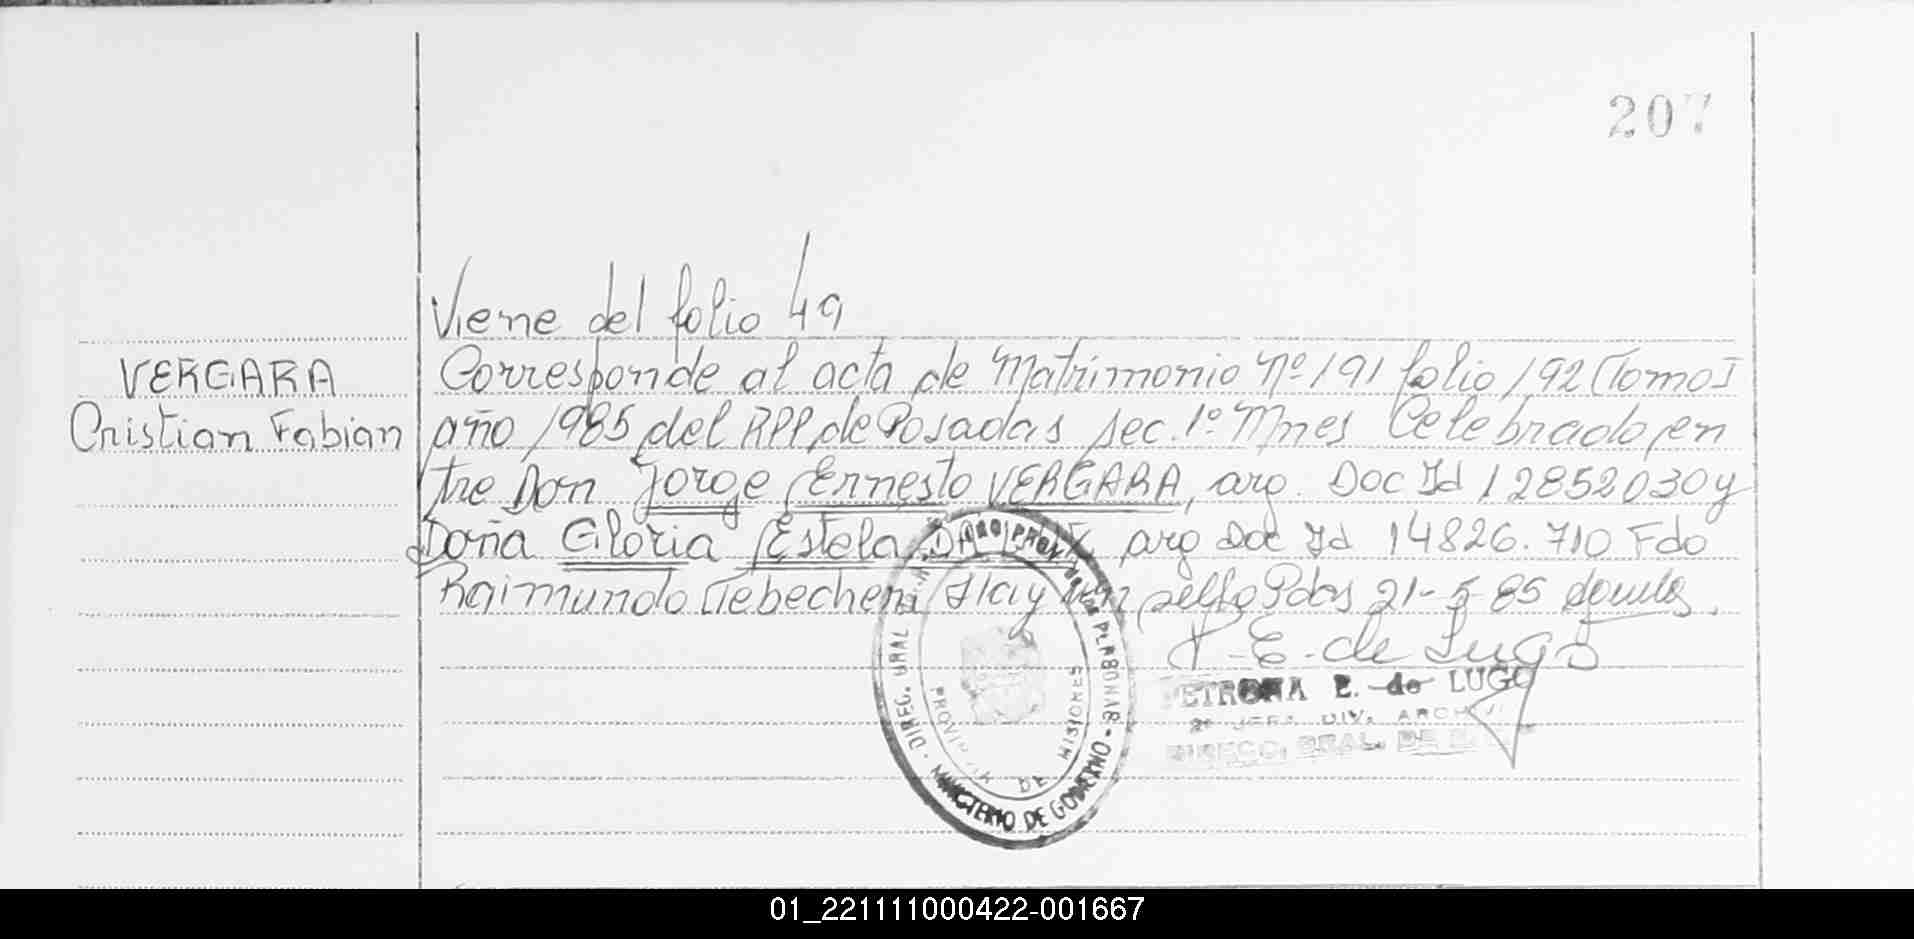 207
Viene del folio 49
VERGARA
Cristian Fabian
Corresponde al acta de Matrimonio Nº 191 folio 192 (Tomo I
año 1985 del RPP de Posadas sec. 1º Mnes Celebrado en
tre Don Jorge Ernesto VERGARA, arg. Doc Id 12852030 y
Doña Gloria Estela DA arg Doc Id 14826.710 Fdo
Raimundo Tebecheri Hay un sello Pdas 21-5-85
P. E. de Lugo
PETRONA E. de LUGO
2º JEFA DIV. ARCH
DIRECC. GRAL. DE
DIREC. GRAL
PROVINCIA DE MISIONES
MINISTERIO DE GOBIERNO
01_221111000422-001667